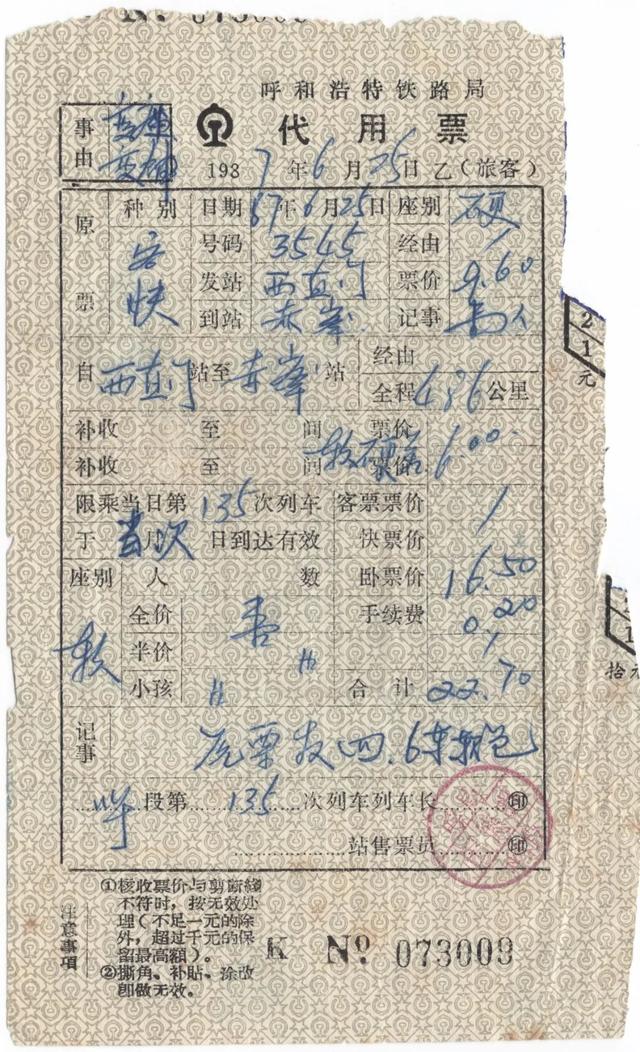 呼和浩特铁路局
事由
代用票
1987年6月25日 乙(旅客)
原票
种别 日期 87年6月25日 座别 硬
客快
号码 3545 经由 /
发站 西直门 票价 9.60
到站 赤峯 记事
自 西直门 站至 赤峯 站 经由
全程 486 公里
补收 至 间 票价 6.00
补收 至 间 票价
限乘当日第 135 次列车 客票票价 /
于 当月次 日到达有效 快票价
座别 人数 卧票价 16.50
软
全价 手续费 0.20
半价 〃 /
小孩 〃 合计 22.70
记事
呼 段第 135 次列车列车长 印
站售票员 印
注意事項
①核收票价与剪断綫
不符时，按无效处
理(不足一元的除
外，超过千元的保
留最高額)。
②撕角、补貼、涂改
卽做无效。
K No 073009
21元
拾元